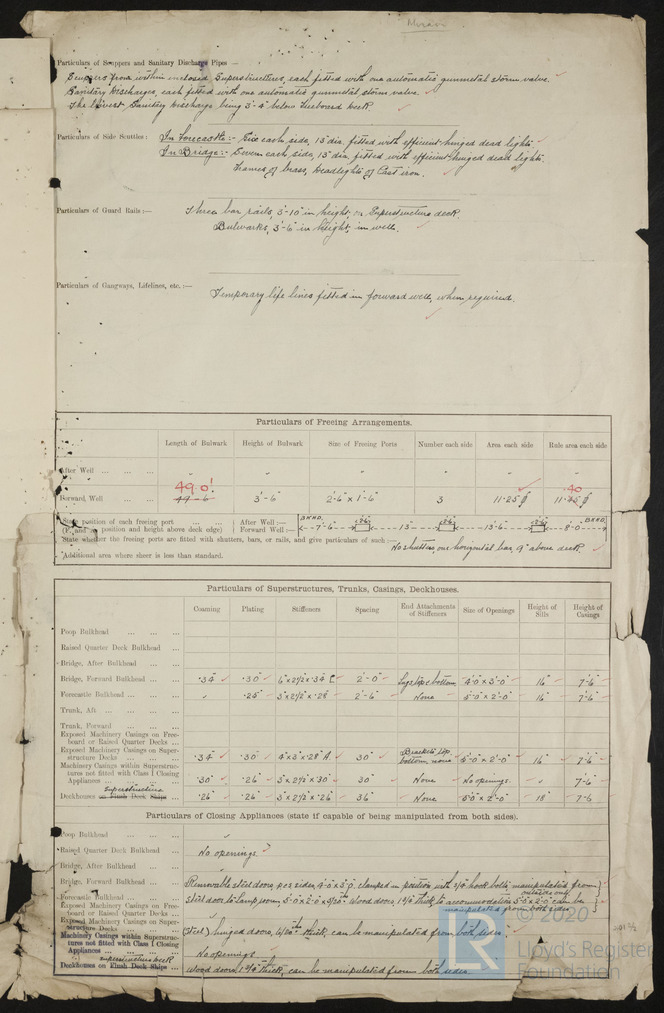 Particulars of Scuppers and Sanitary Discharge Pipes —
Scuppers from within enclosed Superstructures, each fitted with one automatic gunmetal storm valve.
Sanitary Discharges, each fitted with one automatic gunmetal storm valve.
The lowest Sanitary Discharge being 3'-4" below Freeboard Deck.
Particulars of Side Scuttles :— In Forecastle:- Five each side, 13" dia. fitted with efficient hinged dead lights.
In Bridge:- Seven each side, 13" dia. fitted with efficient hinged dead lights.
Frames of brass, Deadlights of Cast iron.
Particulars of Guard Rails :— Three bar rails, 3'-10" in height, on Superstructure deck.
Bulwarks, 3'-6" in height, in well.
Particulars of Gangways, Lifelines, etc. :—
Temporary life lines fitted in forward well, when required.
Particulars of Freeing Arrangements.
Length of Bulwark Height of Bulwark Size of Freeing Ports Number each side Area each side Rule area each side
After Well ... ... ... " " " " " "
49.0' .40
Forward Well ... ... 49'-6" 3'-6" 2'-6" x 1'-6" 3 11.25
State position of each freeing port ... ... ... After Well :—
(F. and position and height above deck edge) Forward Well :— BKHD. 7'-6" 2'6" 13' 2'6" 13'-6" 2'6" 8'-0" BKHD.
State whether the freeing ports are fitted with shutters, bars, or rails, and give particulars of such :— No shutters one horizontal bar, 9" above deck.
*Additional area where sheer is less than standard.
Particulars of Superstructures, Trunks, Casings, Deckhouses.
Coaming Plating Stiffeners Spacing End Attachments of Stiffeners Size of Openings Height of Sills Height of Casings
Poop Bulkhead ... ... ...
Raised Quarter Deck Bulkhead ...
Bridge, After Bulkhead ... ...
Bridge, Forward Bulkhead ... ... .34" .30" 6" x 2½" x .34" 2'-0" Lugs top & bottom 4'0" x 5'0" 16" 7'-6"
Forecastle Bulkhead ... ... ... .25" 3" x 2½" x .28" 2'-6" None 5'0" x 2'0" 16" 7'-6"
Trunk, Aft ... ... ...
Trunk, Forward ... ... ...
Exposed Machinery Casings on Free-
board or Raised Quarter Decks ...
Exposed Machinery Casings on Super-
structure Decks ... ... ... .34" .30" 4" x 3" x .28" A. 30" Brackets top, bottom, none 5'0" x 2'0" 16" 7'-6"
Machinery Casings within Superstruc-
tures not fitted with Class I Closing
Appliances ... ... ... .30" .26" 3" x 2½" x .30" 30" None No openings. 7'-6"
superstructure
Deckhouses on Flush Deck Ships ... .26" .26" 3" x 2½" x .26" 36" None 5'0" x 2'0" 18" 7'-6
Particulars of Closing Appliances (state if capable of being manipulated from both sides).
Poop Bulkhead ... ... ... "
Raised Quarter Deck Bulkhead ... No openings. ?
Bridge, After Bulkhead ... ... "
Bridge, Forward Bulkhead ... ... Removable steel doors, p & s sides, 4'0" x 5'0", clamped in position with 3/4" hook bolts, manipulated from
outside only
Forecastle Bulkhead ... ... Steel door to Lamp room, 5'0" x 2'0" x 5/20". Wood doors, 1¾" thick, to accommodation 5'0" x 2'0" can be
manipulated from both sides.
Exposed Machinery Casings on Free-
board or Raised Quarter Decks ...
Exposed Machinery Casings on Super-
structure Decks ... ... (Steel) hinged doors, 6/20" thick, can be manipulated from both sides
Machinery Casings within Superstruc-
tures not fitted with Class I Closing
Appliances ... ... No openings
superstructure deck
Deckhouses on Flush Deck Ships ... Wood doors 1¾" thick, can be manipulated from both sides
© 2020
LR
Lloyd's Register
Foundation